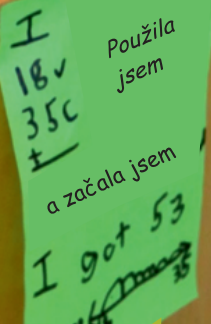 I
18v
35c
+
Použila
jsem
a začala jsem
I got 53
35